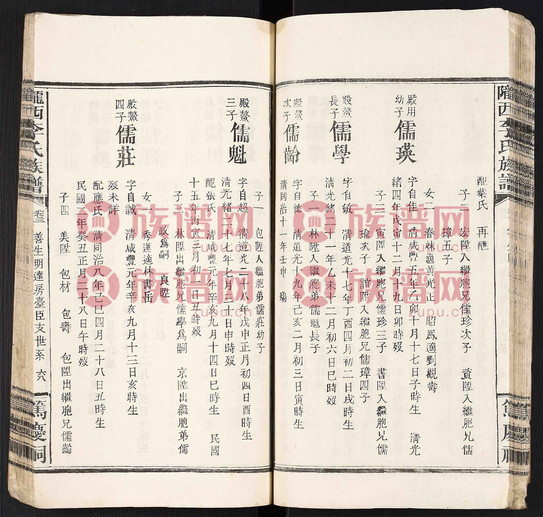 隴西李氏族譜
配葉氏 再醮
子 宏陞入繼儒珍次子 賁陞入繼胞兄儒
璋五子
女
嚴用幼子
儒瑛
字自佳 清咸豐五年乙卯十月十七日子時生 清光
緒四年戊寅十二月十九日卯時歿
子 寅陞入繼胞兄儒珍三子 書陞入繼胞兄儒
瑜次子 入繼胞兄儒璋四子
殿鰲長子
儒學
字自 清道光十七年丁酉四月初一日寅時生
清光緒二十一年乙未十二月初六日巳時歿
子 林陞入繼胞弟儒魁長子
殿鰲次子
儒齡
字自 清道光十九年己亥二月初三日寅時生
清同治十一年壬申 歿
子 包陞入繼胞弟儒莊幼子
殿鰲三子
儒魁
字自超 清道光二十八年戊申正月初四日酉時生
清光緒十七年七月二十日申時歿
配張氏 清咸豐元年辛亥九月十四日巳時生 民國
十五年丙寅二月初二日午時歿
子 林陞出繼胞兄儒學為嗣 京陞出繼胞弟儒
莊為嗣 良陞
女 秀適林書香
殿鰲四子
儒莊
字自誠 清咸豐元年辛亥九月十三日亥時生
歿未詳
配應氏 清同治八年己巳四月二十八日丑時生
民國二年癸丑正月二十八日午時歿
子四 美陞 包材 包喬 包陞出繼胞兄儒齡
隴西李氏族譜 卷三 善生明達房臺臣支世系 六八 篤慶祠